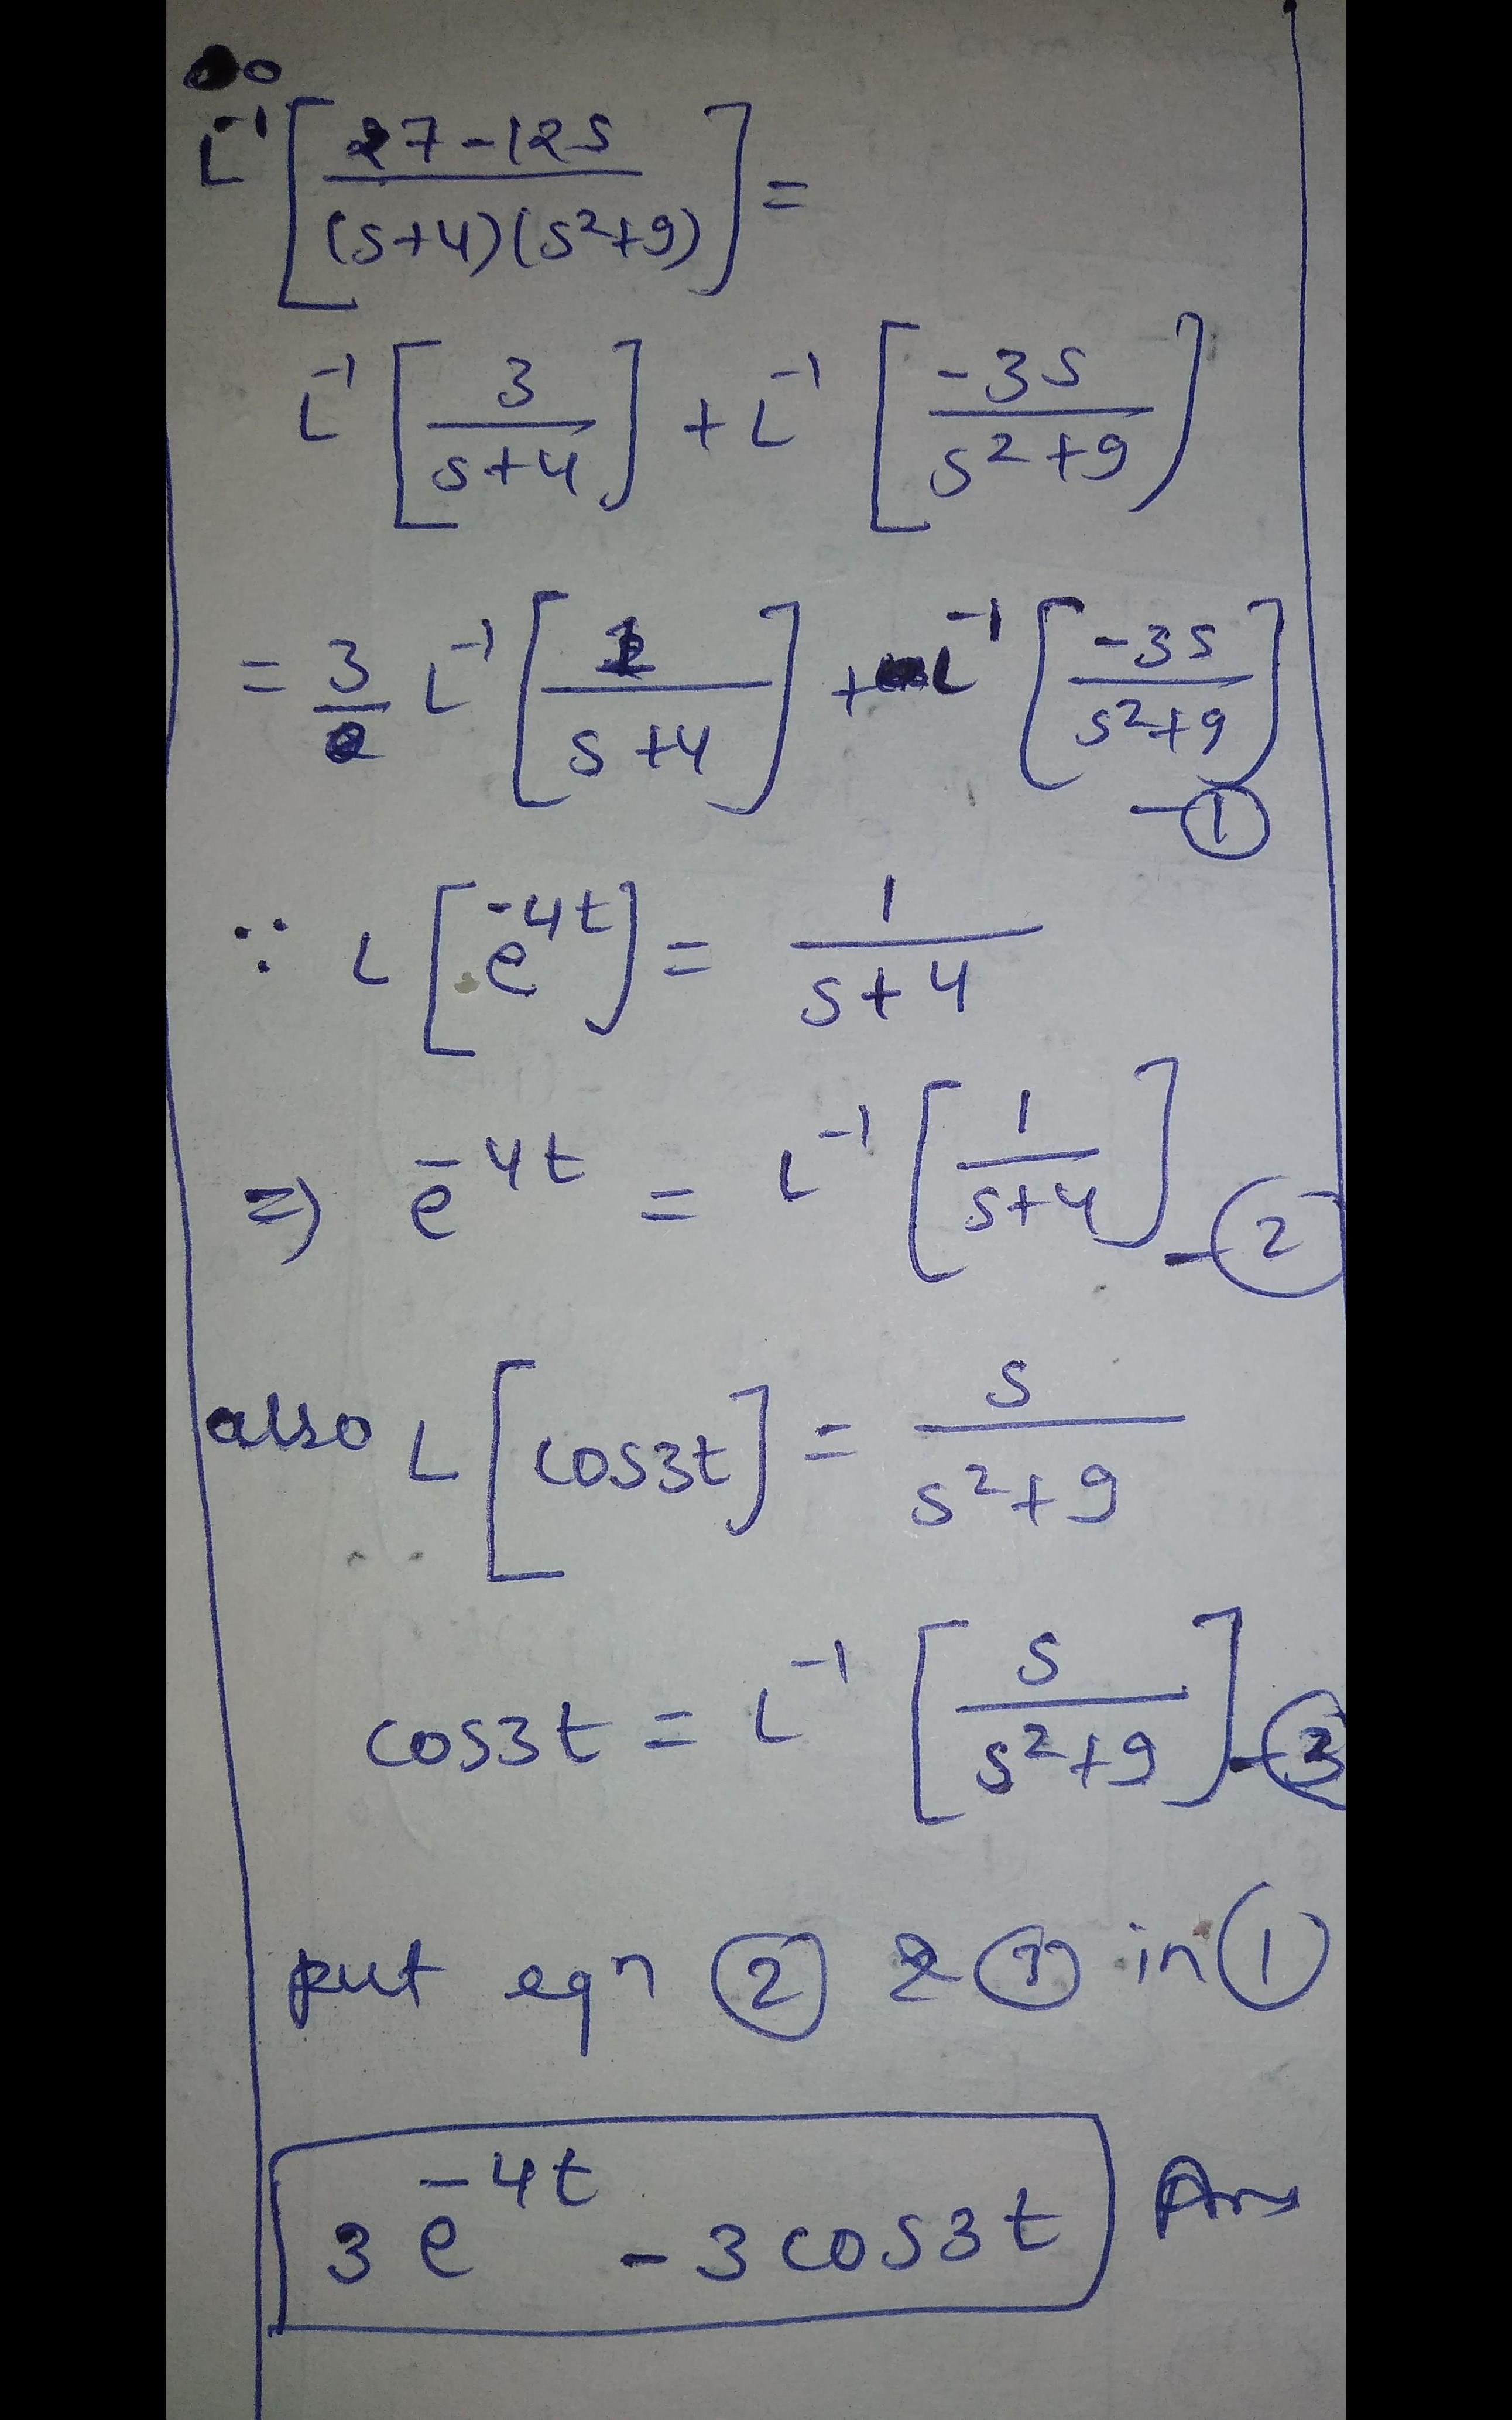 L⁻¹ [ (27-12s) / ((s+4)(s²+9)) ] =
L⁻¹ [ 3 / (s+4) ] + L⁻¹ [ -3s / (s²+9) ]
= 3 L⁻¹ [ 1 / (s+4) ] + L⁻¹ [ -3s / (s²+9) ] - ①
∵ L [ e^(-4t) ] = 1 / (s+4)
⇒ e^(-4t) = L⁻¹ [ 1 / (s+4) ] - ②
also L [ cos3t ] = s / (s²+9)
cos3t = L⁻¹ [ s / (s²+9) ] - ③
put eqn ② & ③ in ①
3 e^(-4t) - 3 cos3t Ans